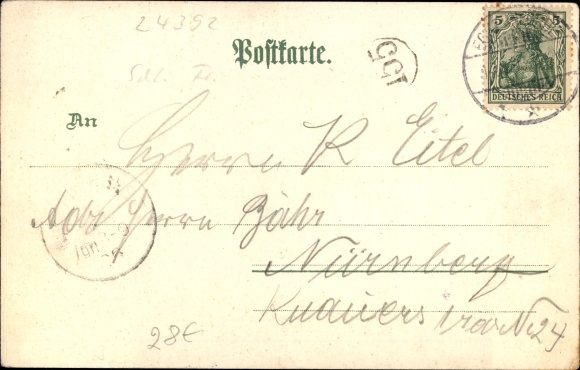 24392
Postkarte.
155
5 5
DEUTSCHES REICH
An
Herrn K Eitel
Adr Herrn Bähr
Nürnberg
Knauerstraße Nr 24
28€